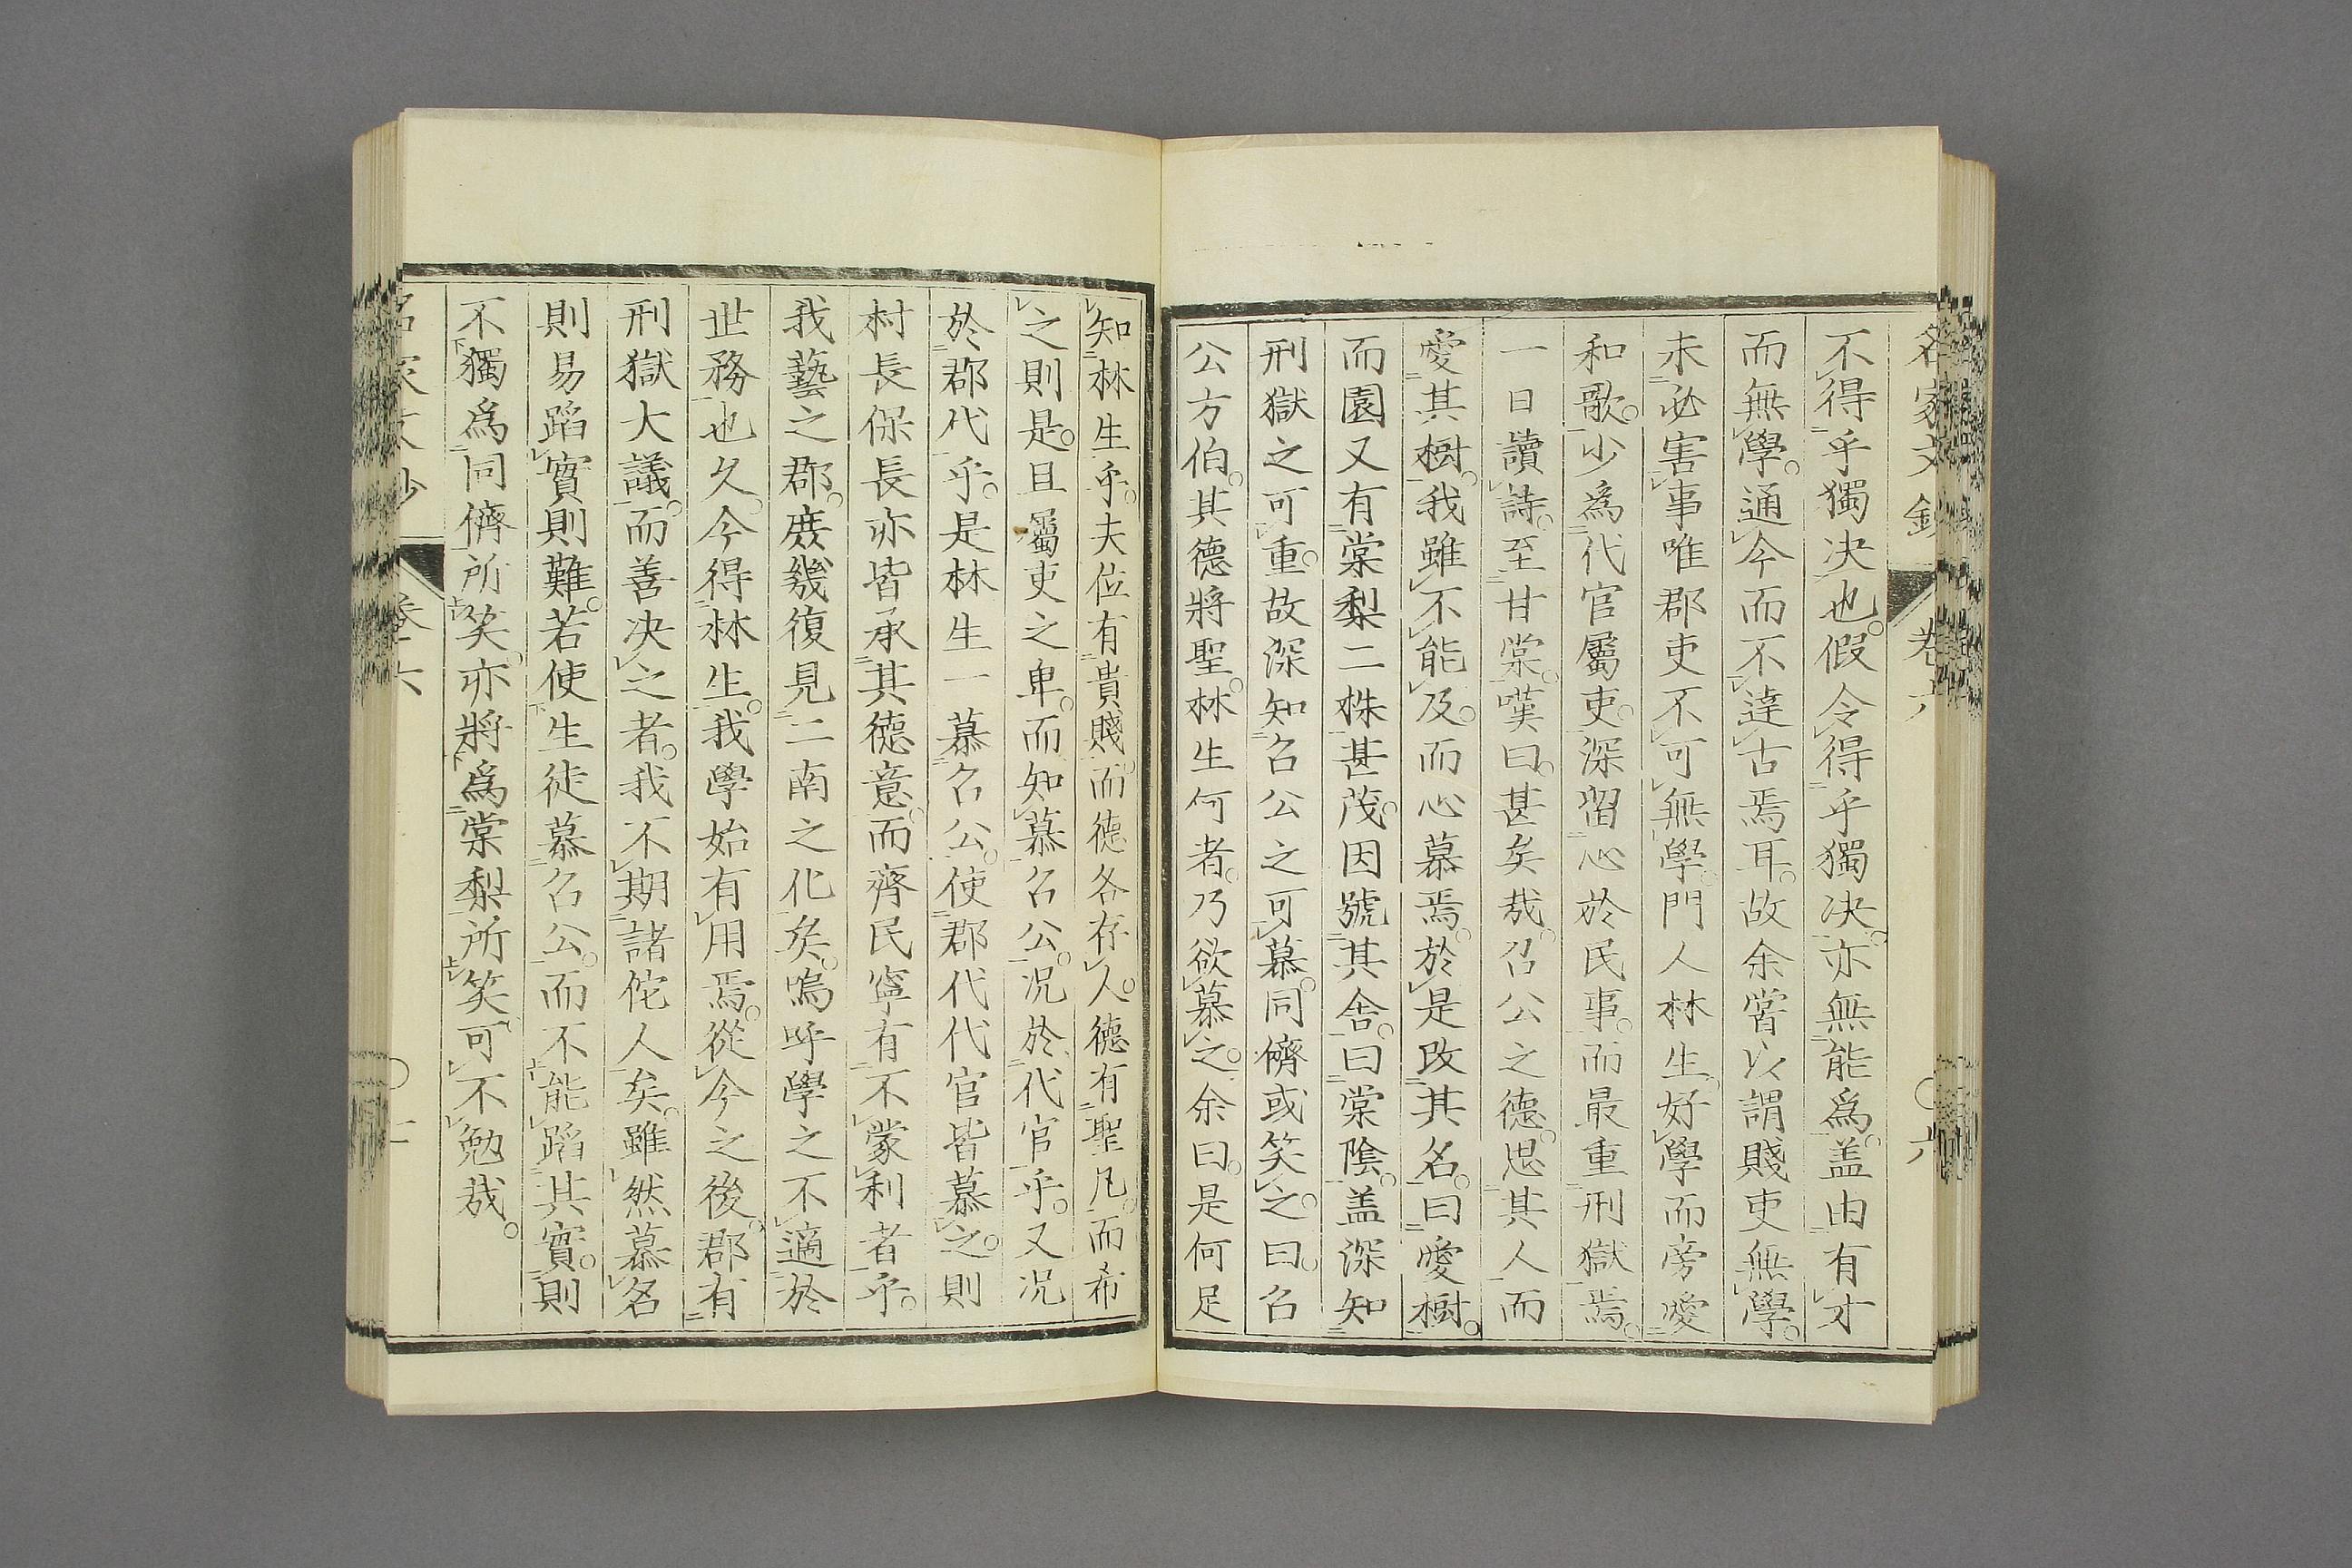 名家文鈔 卷六 〇六
不得乎獨决也。假令得乎獨决。亦無能爲。盖由有才
而無學。通今而不達古焉耳。故余嘗以謂賤吏無學。
未必害事唯郡吏不可無學。門人林生。好學而旁愛
和歌。少爲代官屬吏。深留心於民事。而最重刑獄焉。
一日讀詩。至甘棠。嘆曰。甚矣哉。召公之德。思其人而
愛其樹。我雖不能及。而心慕焉。於是改其名。曰愛樹。
而園又有棠梨二株甚茂。因號其舍。曰棠陰。盖深知
刑獄之可重。故深知召公之可慕。同儕或笑之。曰。召
公方伯。其德將聖。林生何者。乃欲慕之。余曰。是何足
知林生乎。夫位有貴賤。而德各存人。德有聖凡。而希
之則是。且屬吏之卑。而知慕召公。况於代官乎。又况
於郡代乎。是林生一慕召公。使郡代代官皆慕之。則
村長保長亦皆承其德意。而齊民寧有不蒙利者乎。
我藝之郡。庶幾復見二南之化矣。嗚呼學之不適於
世務也久。今得林生。我學始有用焉。從今之後。郡有
刑獄大議。而善决之者。我不期諸佗人矣。雖然慕名
則易蹈實則難。若使生徒慕召公。而不能蹈其實。則
不獨爲同儕所笑。亦將爲棠梨所笑。可不勉哉。
名家文鈔 卷六 〇